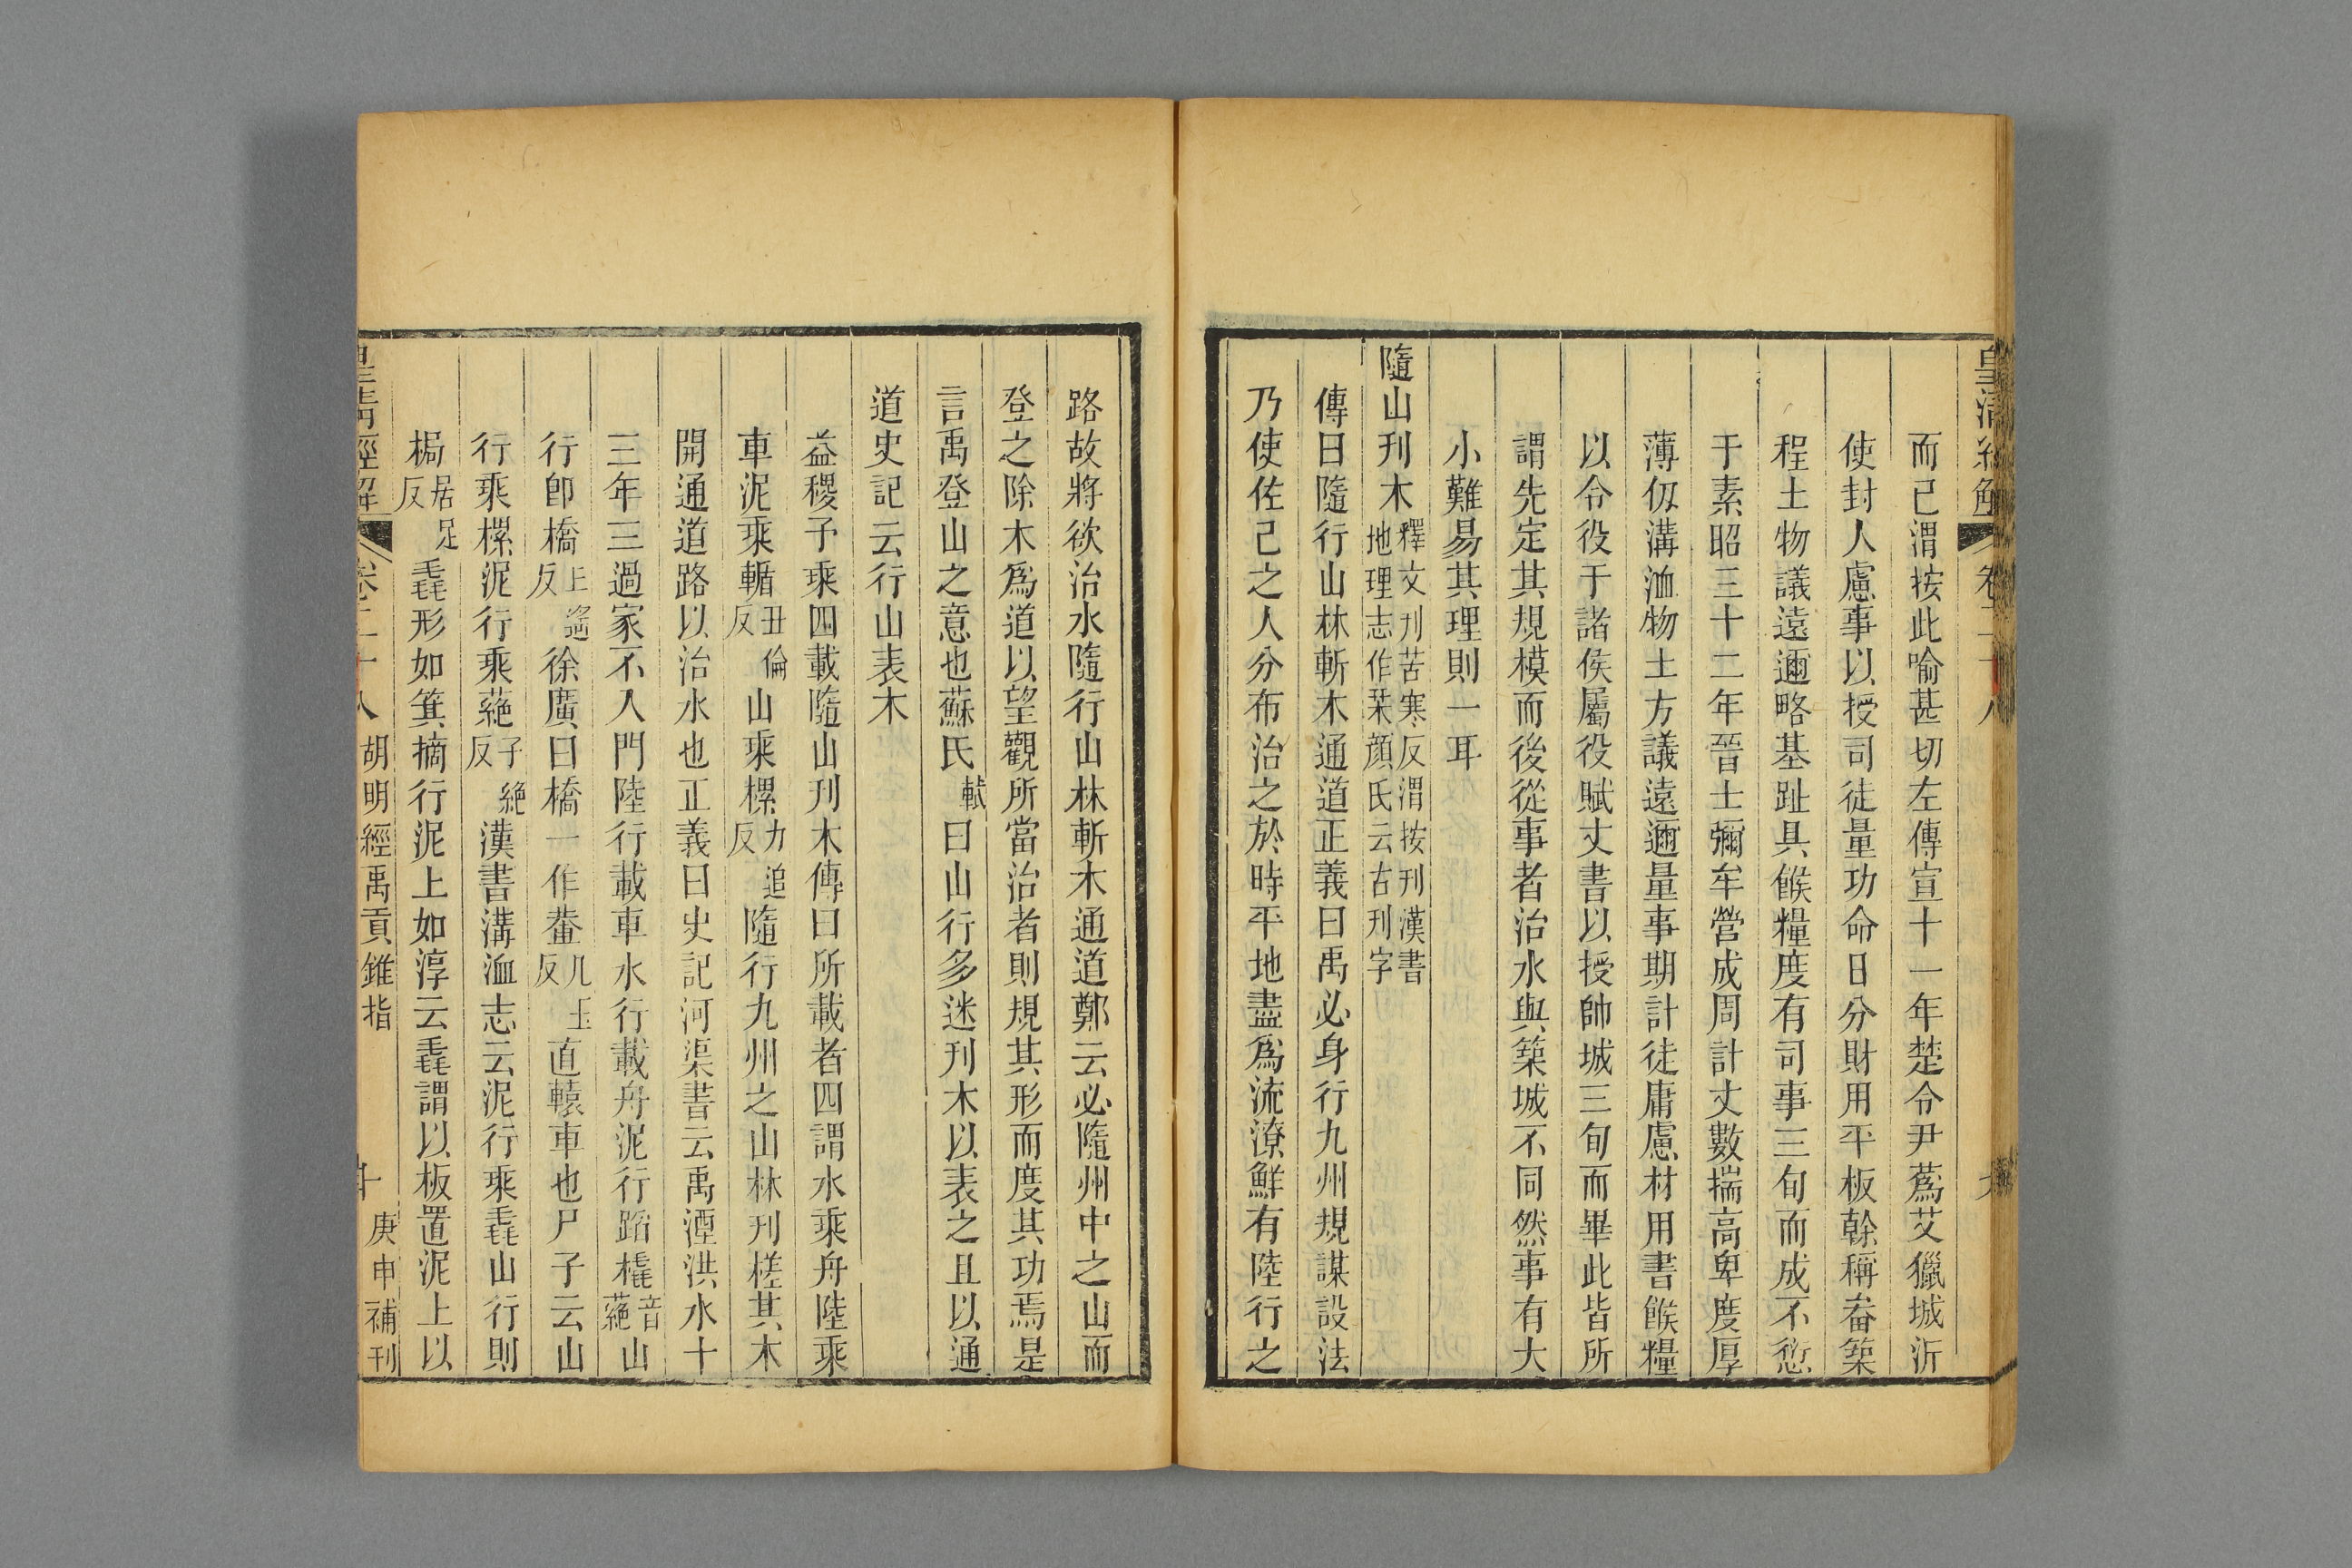 皇清經解
卷二十八
九
而已渭按此喻甚切左傳宣十一年楚令尹蔿艾獵城沂
使封人慮事以授司徒量功命日分財用平板榦稱畚築
程土物議遠邇略基趾具餱糧度有司事三旬而成不愆
于素昭三十二年晉士彌牟營成周計丈數揣高卑度厚
薄仭溝洫物土方議遠邇量事期計徒庸慮材用書餱糧
以令役于諸侯屬役賦丈書以授帥城三旬而畢此皆所
謂先定其規模而後從事者治水與築城不同然事有大
小難易其理則一耳
隨山刋木釋文刋苦寒反渭按刋漢書地理志作栞顔氏云古刋字
傳曰隨行山林斬木通道正義曰禹必身行九州規謀設法
乃使佐己之人分布治之於時平地盡爲流潦鮮有陸行之
路故將欲治水隨行山林斬木通道鄭云必隨州中之山而
登之除木爲道以望觀所當治者則規其形而度其功焉是
言禹登山之意也蘇氏軾曰山行多迷刋木以表之且以通
道史記云行山表木
益稷予乘四載隨山刋木傳曰所載者四謂水乘舟陸乘
車泥乘輴丑倫反山乘樏力追反隨行九州之山林刋槎其木
開通道路以治水也正義曰史記河渠書云禹湮洪水十
三年三過家不入門陸行載車水行載舟泥行蹈橇音蕝山
行卽橋丘遙反徐廣曰橋一作檋几玉反直轅車也尸子云山
行乘樏泥行乘蕝子絕反漢書溝洫志云泥行乘毳山行則
梮居足反毳形如箕擿行泥上如淳云毳謂以板置泥上以
皇清經解
卷二十八
胡明經禹貢錐指
十
庚申補刋